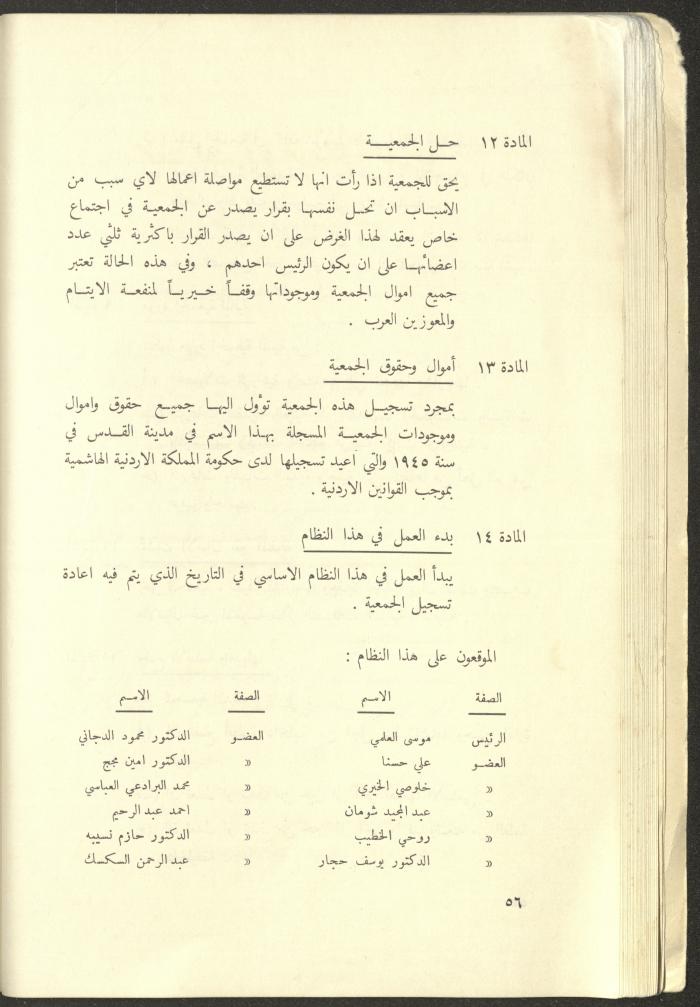 المادة ١٢ حل الجمعية
يحق للجمعية اذا رأت انها لا تستطيع مواصلة اعمالها لاي سبب من
الاسباب ان تحل نفسها بقرار يصدر عن الجمعية في اجتماع
خاص يعقد لهذا الغرض على ان يصدر القرار باكثرية ثلثي عدد
اعضائها على ان يكون الرئيس احدهم ، وفي هذه الحالة تعتبر
جميع اموال الجمعية وموجوداتها وقفاً خيرياً لمنفعة الايتام
والمعوزين العرب .
المادة ١٣ أموال وحقوق الجمعية
بمجرد تسجيل هذه الجمعية تؤول اليها جميع حقوق واموال
وموجودات الجمعية المسجلة بهذا الاسم في مدينة القدس في
سنة ١٩٤٥ والتي اعيد تسجيلها لدى حكومة المملكة الاردنية الهاشمية
بموجب القوانين الاردنية .
المادة ١٤ بدء العمل في هذا النظام
يبدأ العمل في هذا النظام الاساسي في التاريخ الذي يتم فيه اعادة
تسجيل الجمعية .
الموقعون على هذا النظام :
الصفة الاسم الصفة الاسم
الرئيس موسى العلمي العضو الدكتور محمود الدجاني
العضو علي حسنا » الدكتور امين مجج
» خلوصي الخيري » محمد البرادعي العباسي
» عبد المجيد شومان » احمد عبد الرحيم
» روحي الخطيب » الدكتور حازم نسيبه
» الدكتور يوسف حجار » عبد الرحمن السكسك
٥٦